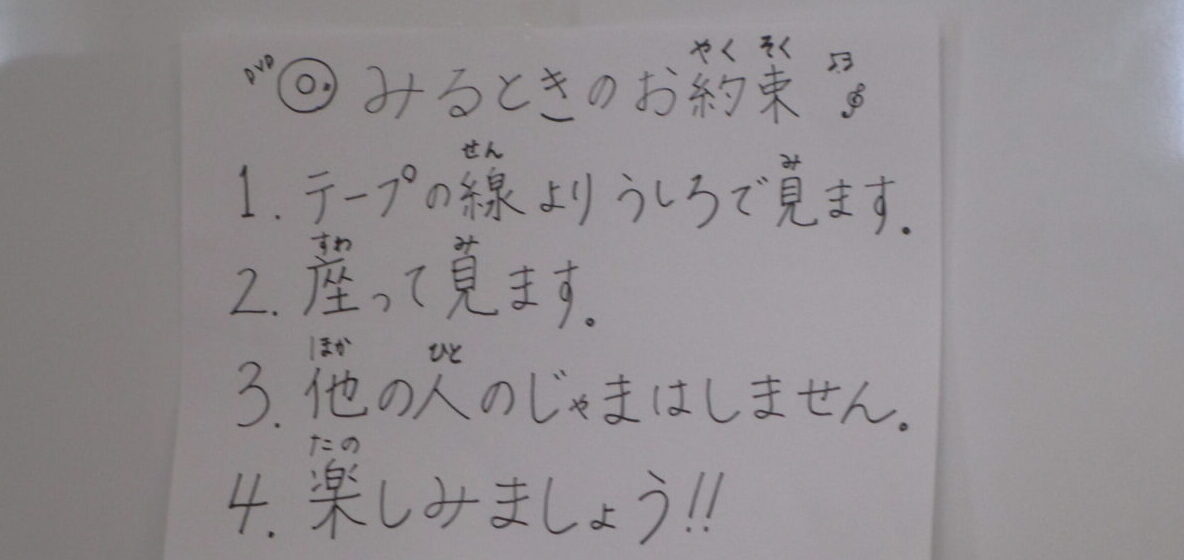 DVD みるときのお約束
やく そく
1. テープの線よりうしろで見ます。
せん み
2. 座って見ます。
すわ み
3. 他の人のじゃまはしません。
ほか ひと
4. 楽しみましょう!!
たの